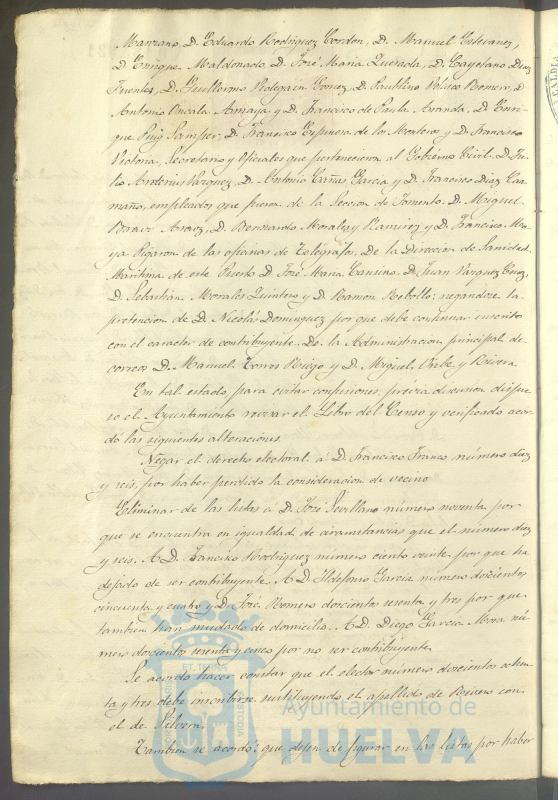 Manzano, D. Eduardo Rodriguez Cordon, D. Manuel Estevanez,
D. Enrique Maldonado D. José Maria Quesada, D. Cayetano Diaz
Fuentes, D. Guillermo Gomez, D. Paublino Romero, D.
Antonio Oncala Amaya y D. Francisco de Paula Aranda, D. Enri-
que Puig Samper, D. Francisco Espinosa de los Monteros y D. Francisco
Victoria, Secretario y Oficiales que pertenecieron al Gobierno Civil. D. Ju-
lio Vazquez, D. Antonio Cañas Garcia y D. Francisco Diaz Caa-
maño, empleados que fueron de la Seccion de Fomento. D. Miguel
D. Bernardo Morales y Ramirez y D. Francisco Mo-
ya Pizarro de las oficinas de Telégrafos. De la Direccion de Sanidad
Maritima de este Puerto D. José Maria Cansino, D. Juan Vazquez
D. Sebastian Morales Quintero y D. Ramon Rebollo: negandose la
pretencion de D. Nicolás Dominguez por que debe continuar inscrito
con el caracter de contribuyente. De la Administracion principal de
correos D. Manuel Torres Riego y D. Miguel Uribe y Rivera
En tal estado para evitar confusiones, prévia discusion dispu-
so el Ayuntamiento revisar el Libro del Censo y verificado acor-
dó las siguientes alteraciones.
Negar el derecho electoral á D. Francisco Franco número diez
y seis, por haber perdido la consideracion de vecino
Eliminar de las listas á D. José Sevillano número noventa por
que se encuentra en igualdad de circunstancias que el número diez
y seis. A D. Francisco Rodriguez número ciento veinte, por que ha
dejado de ser contribuyente. A D. Ildefonso Garcia número doscientos
cincuenta y cuatro y D. José Romero doscientos sesenta y tres por que
tambien han mudado de domicilio. A D. Diego Garcia Mora nú-
mero doscientos sesenta y cinco por no ser contribuyente.
Se acordó hacer constar que el elector número doscientos ochen-
ta y tres debe inscribirse sustituyendo el apellido de con
el de
Tambien se acordó: que dejen de figurar en las listas por haber
Ayuntamiento de
HUELVA